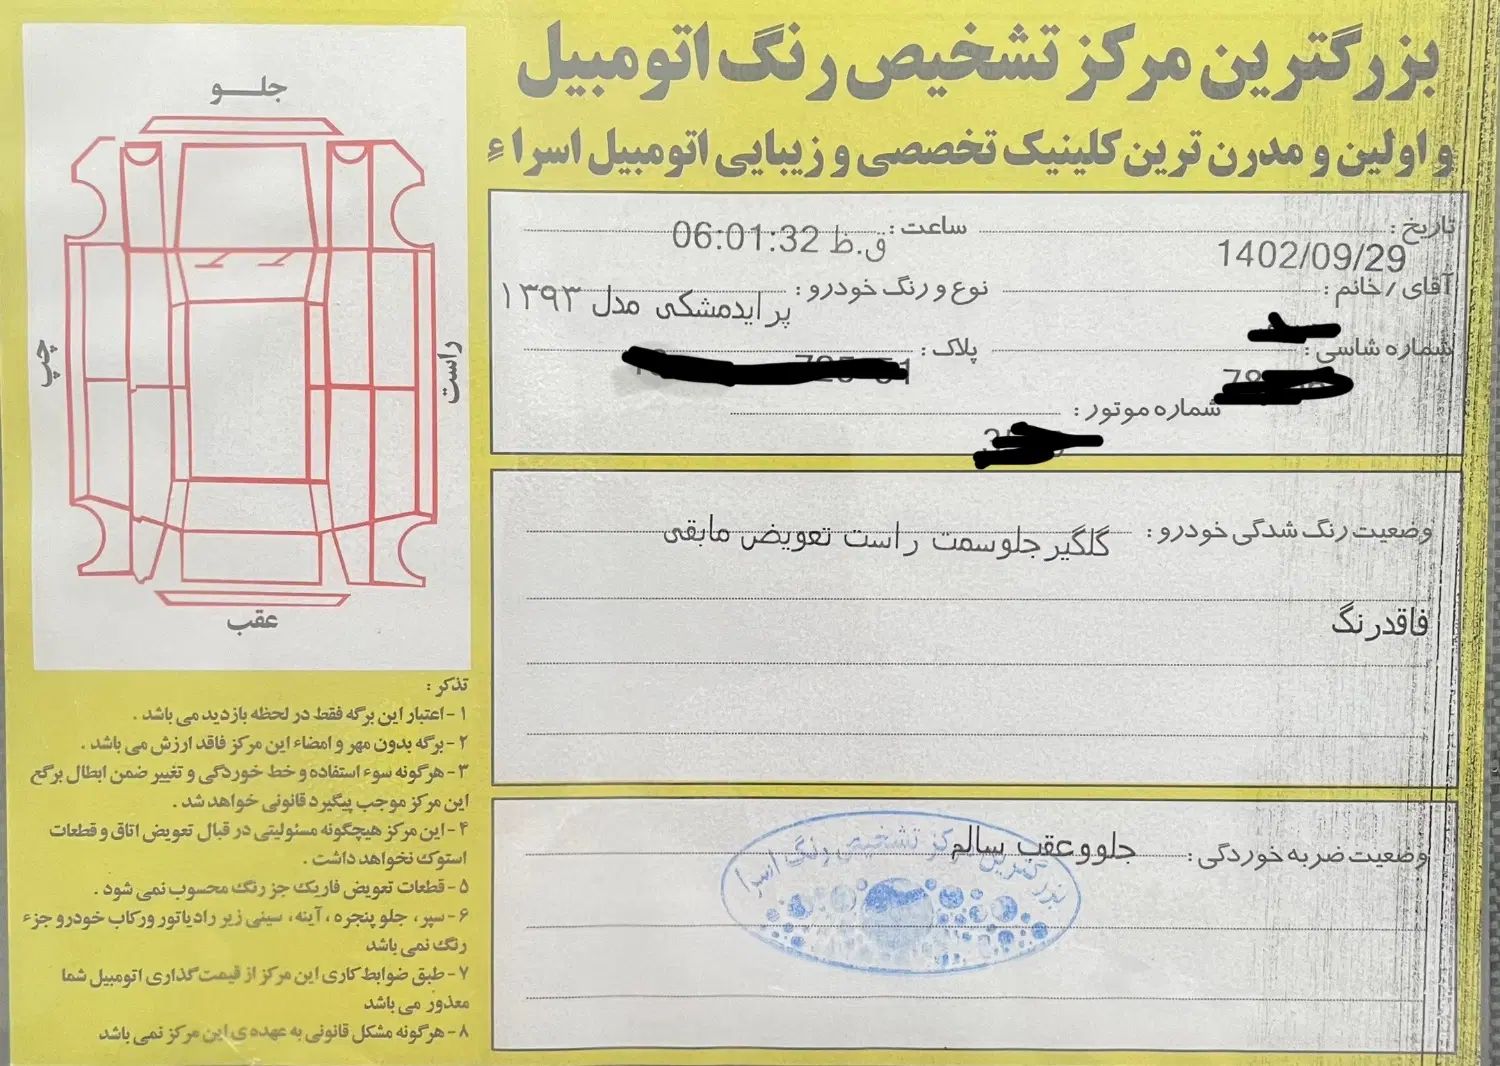 بزرگترین مرکز تشخیص رنگ اتومبیل
و اولین و مدرن ترین کلینیک تخصصی و زیبایی اتومبیل اسراء
تاریخ :
1402/09/29
ساعت :
06:01:32 ق.ظ
آقای / خانم :
نوع و رنگ خودرو :
پرایدمشکی مدل ۱۳۹۳
شماره شاسی :
پلاک :
شماره موتور :
وضعیت رنگ شدگی خودرو :
گلگیر جلوسمت راست تعویض مابقی
فاقدرنگ
وضعیت ضربه خوردگی :
جلووعقب سالم
بزرگترین مرکز تشخیص رنگ اسرا
جلـــو
چپ
راست
عقب
تذکر :
۱ - اعتبار این برگه فقط در لحظه بازدید می باشد .
۲ - برگه بدون مهر و امضاء این مرکز فاقد ارزش می باشد .
۳ - هرگونه سوء استفاده و خط خوردگی و تغییر ضمن ابطال برگع
این مرکز موجب پیگیرد قانونی خواهد شد .
۴ - این مرکز هیچگونه مسئولیتی در قبال تعویض اتاق و قطعات
استوک نخواهد داشت .
۵ - قطعات تعویض فابریک جز رنگ محسوب نمی شود .
۶ - سپر ، جلو پنجره ، آینه ، سینی زیر رادیاتور ورکاب خودرو جزء
رنگ نمی باشد
۷ - طبق ضوابط کاری این مرکز از قیمت گذاری اتومبیل شما
معذور می باشد
۸ - هرگونه مشکل قانونی به عهده ی این مرکز نمی باشد